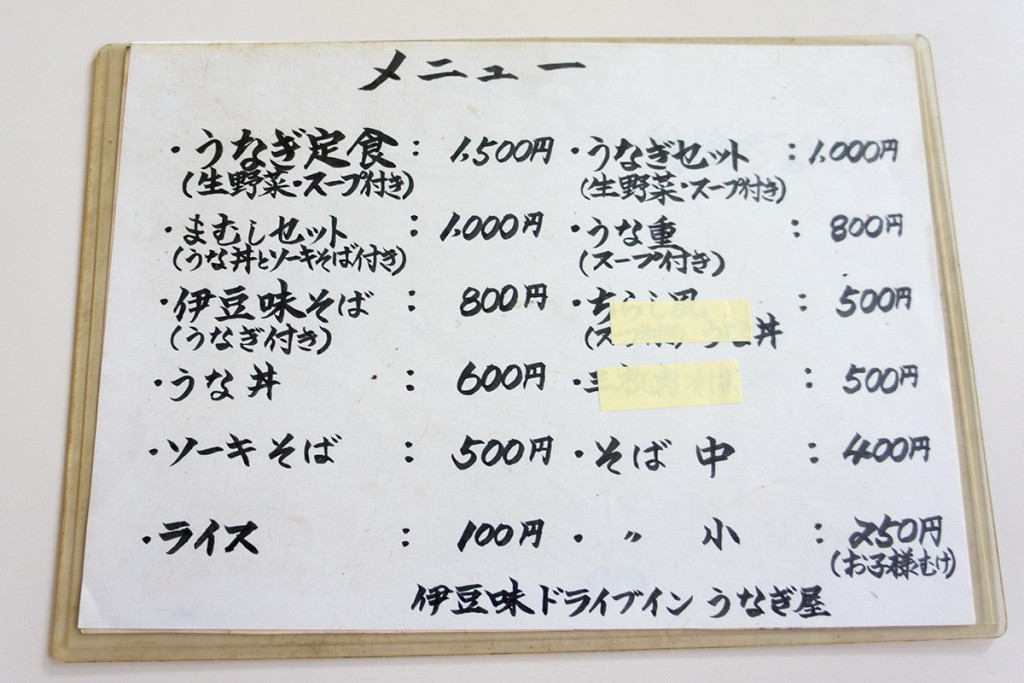 メニュー
・うなぎ定食： 1,500円
(生野菜・スープ付き)
・まむしセット： 1,000円
(うな丼とソーキそば付き)
・伊豆味そば： 800円
(うなぎ付き)
・うな丼： 600円
・ソーキそば： 500円
・ライス： 100円
・うなぎセット： 1,000円
(生野菜・スープ付き)
・うな重： 800円
(スープ付き)
・ちらし風： 500円
丼
・三枚肉そば： 500円
・そば 中： 400円
・〃 小： 250円
(お子様むけ)
伊豆味ドライブイン うなぎ屋